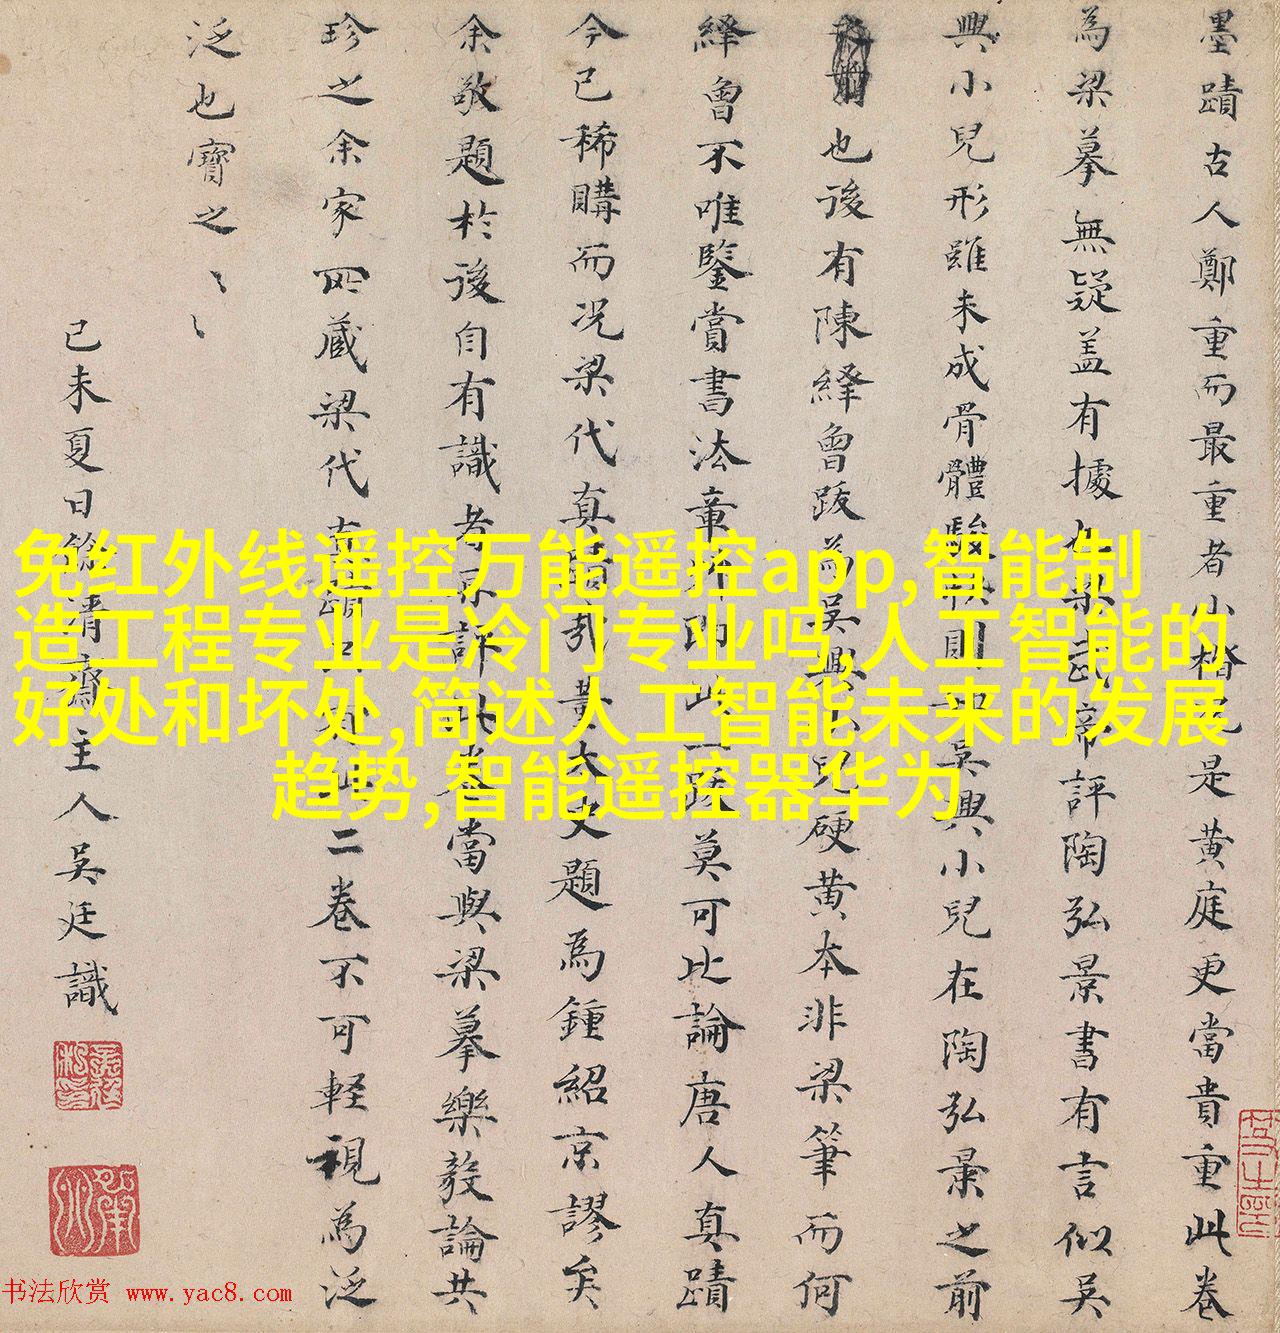 墨蹟古人鄭重而最重者小楷尤是黄庭更當貴重此卷
為梁摹無疑盖有據也梁武帝評陶弘景書有言似吴
興小兒形雖未成骨體駿快則知吴興小兒在陶弘景之前
也後有陳繹曾跋為吴興小兒硬黄本非梁筆而何
繹曾不唯鑒賞書法章折即此一跋莫可比論唐人真蹟
今已稀購而况梁代真蹟哉黄太史題為鍾紹京謬矣
余敬題於後自有識者原評此卷當與梁摹樂毅論共
珍之余家所藏梁代真蹟只有此二卷不可軽視為泛
泛也寶之〻〻
己未夏日餘清齋主人吴廷識
免红外线遥控万能遥控app,智能制
造工程专业是冷门专业吗,人工智能的
好处和坏处,简述人工智能未来的发展
趋势,智能遥控器华为
书法欣赏 www.yac8.com